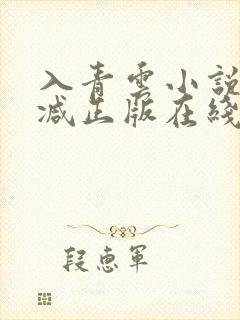 入青雲小說
减出版在綫
段惠軍